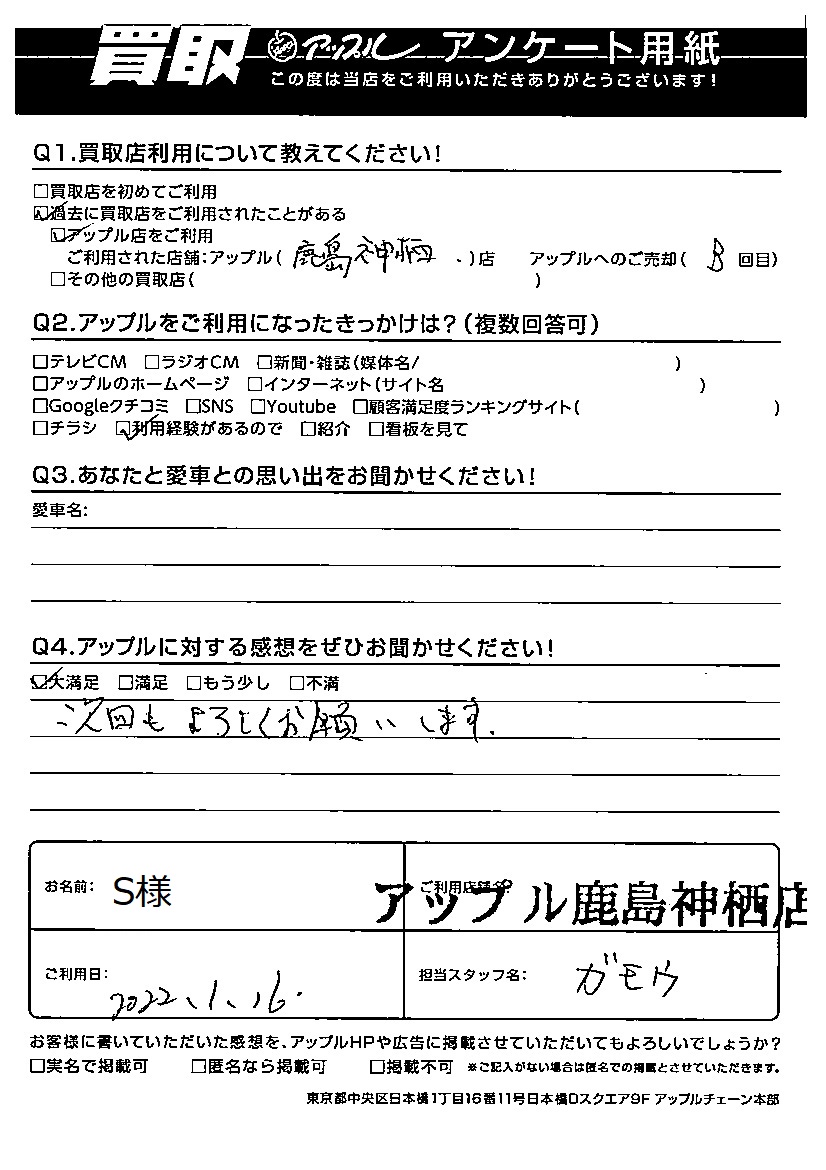 買取 アップル アンケート用紙
この度は当店をご利用いただきありがとうございます!
Q1.買取店利用について教えてください!
□買取店を初めてご利用
☑過去に買取店をご利用されたことがある
☑アップル店をご利用
ご利用された店舗:アップル( 鹿島神栖 )店 アップルへのご売却( 3 回目)
□その他の買取店( )
Q2.アップルをご利用になったきっかけは?(複数回答可)
□テレビCM □ラジオCM □新聞・雑誌(媒体名/ )
□アップルのホームページ □インターネット(サイト名 )
□Googleクチコミ □SNS □Youtube □顧客満足度ランキングサイト( )
□チラシ ☑利用経験があるので □紹介 □看板を見て
Q3.あなたと愛車との思い出をお聞かせください!
愛車名:
Q4.アップルに対する感想をぜひお聞かせください!
☑大満足 □満足 □もう少し □不満
次回もよろしくお願いします.
お名前: S様 ご利用店舗名:
アップル鹿島神栖店
ご利用日: 2022、1、16. 担当スタッフ名: ガモウ
お客様に書いていただいた感想を、アップルHPや広告に掲載させていただいてもよろしいでしょうか?
□実名で掲載可 □匿名なら掲載可 □掲載不可 ※ご記入がない場合は匿名での掲載とさせていただきます。
東京都中央区日本橋1丁目16番11号日本橋Dスクエア9F アップルチェーン本部